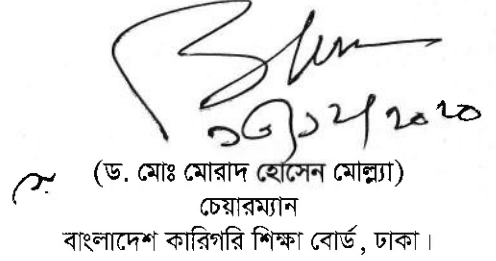 (ড. মোঃ মোরাদ হোসেন মোল্ল্যা)
চেয়ারম্যান
বাংলাদেশ কারিগরি শিক্ষা বোর্ড, ঢাকা।